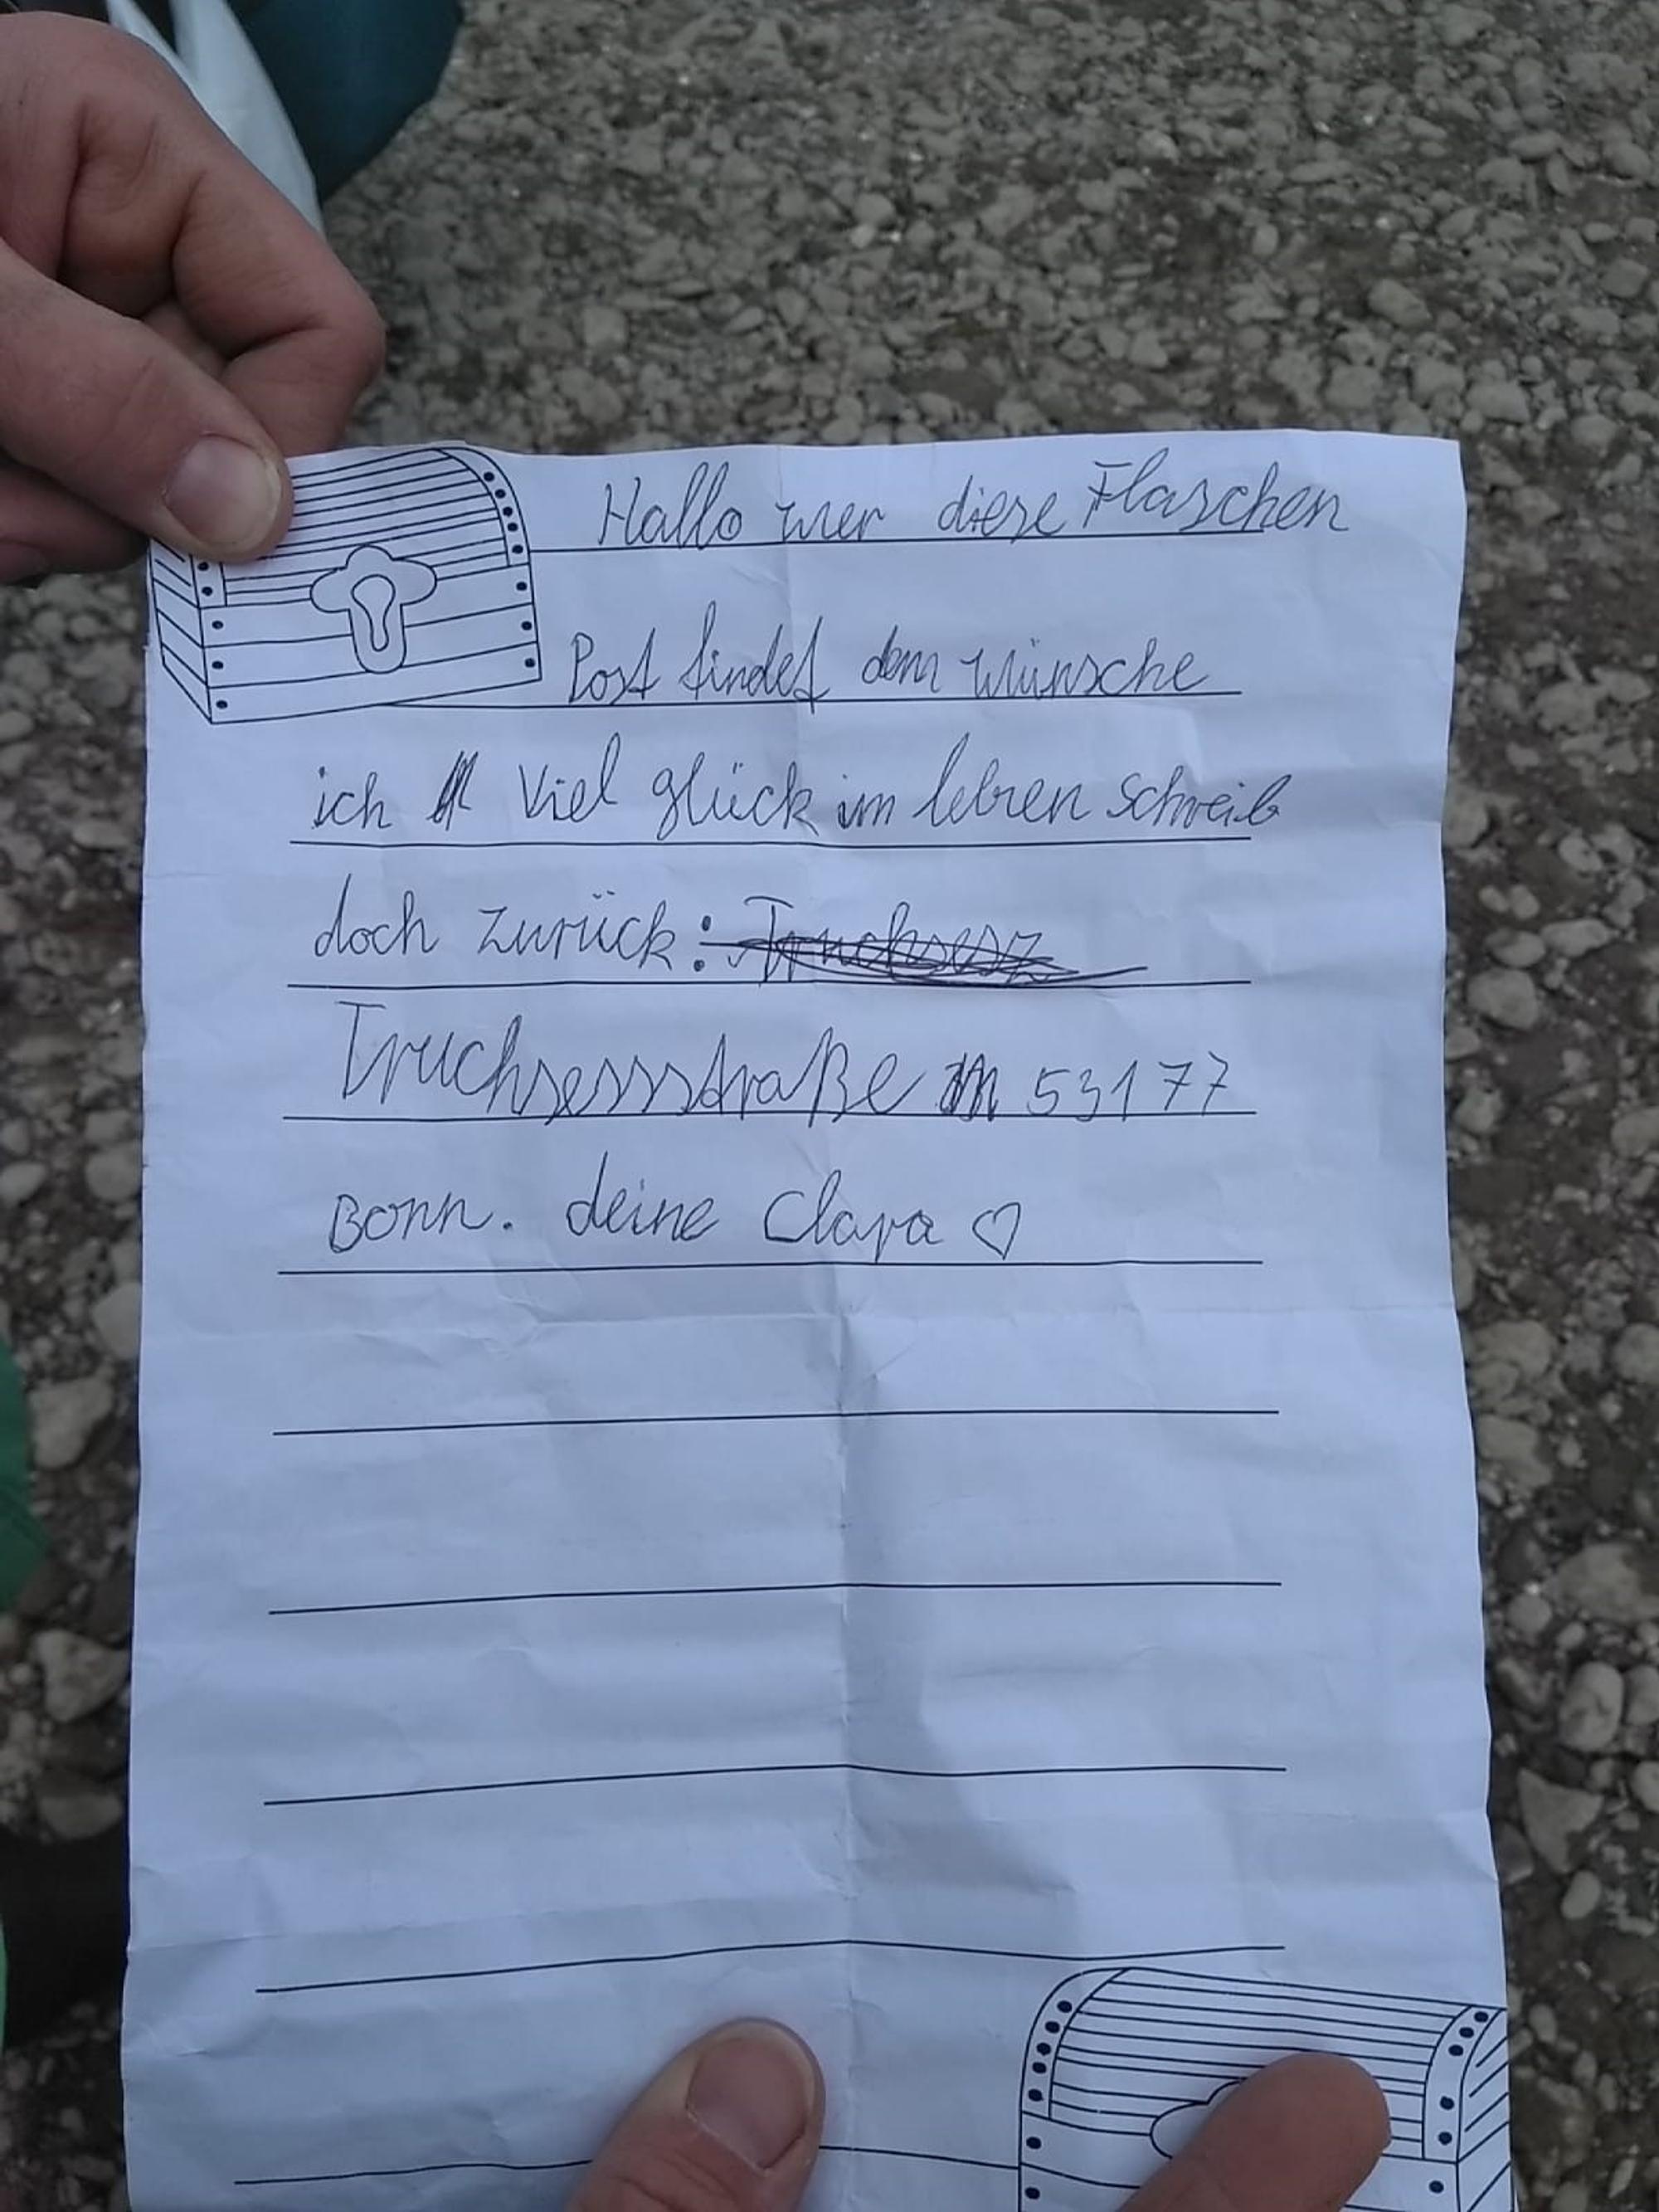 Hallo wer diese Flaschen
Post findet dem wünsche
ich viel glück im leben schreib
doch zurück:
Truchsessstraße 53177
Bonn. deine Clara ♡